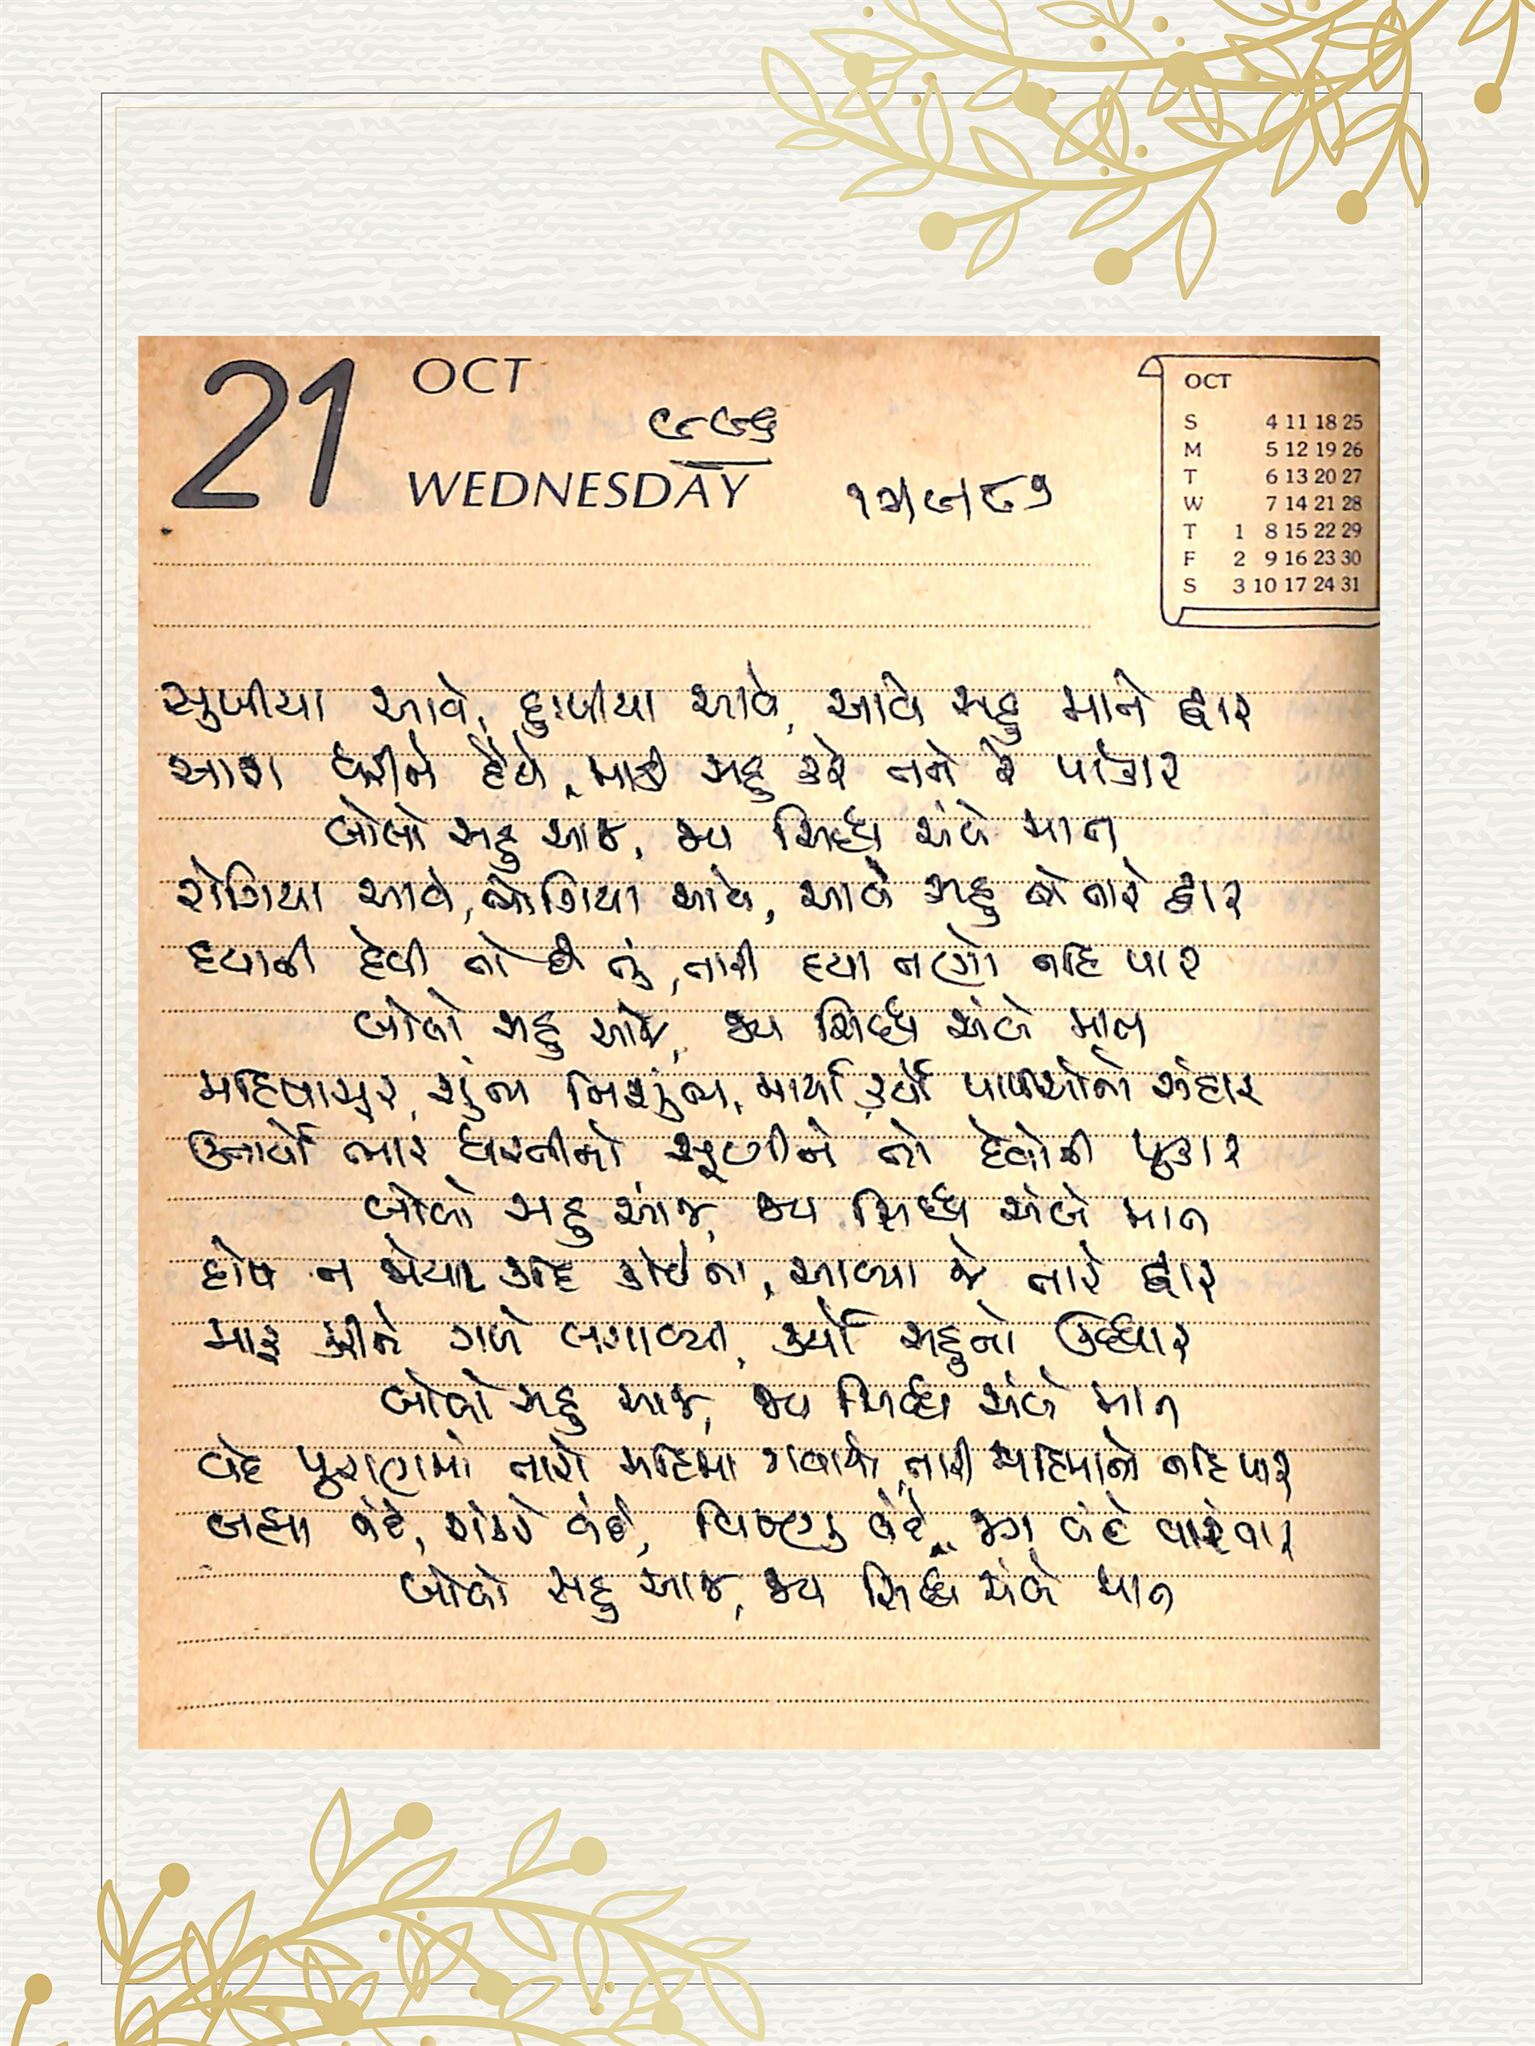 21 OCT
૯૮૯૬
WEDNESDAY ૧૨/૯/૮૭
OCT
S 4 11 18 25
M 5 12 19 26
T 6 13 20 27
W 7 14 21 28
T 1 8 15 22 29
F 2 9 16 23 30
S 3 10 17 24 31
સુખીયા આવે, દુઃખીયા આવે, આવે સહુ માને દ્વાર
આશ ધરીને હૈયે, માડી સહુ કરે તને રે પોકાર
બોલો સહુ આજ, જય સિધ્ધ અંબે માત
રોગિયા આવે, ભોગિયા આવે, આવે સહુ તારે દ્વાર
દયાળી દેવી તો છે તું, તારી દયા તણો નહિ પાર
બોલો સહુ આજે, જય સિધ્ધ અંબે માત
મહિષાસુર, શુંભ નિશુંભ, માર્યા કર્યો પાપીઓનો સંહાર
ઉતાર્યો ભાર ધરતીનો સૂણીને તો દેવોની પુકાર
બોલો સહુ આજ, જય સિધ્ધ અંબે માત
દોષ ન જોયા કદિ કોઈના, આવ્યા જે તારે દ્વાર
માફ કરીને ગળે લગાવ્યા, કર્યો સહુનો ઉધ્ધાર
બોલો સહુ આજ, જય સિધ્ધ અંબે માત
વેદ પુરાણમાં તારો મહિમા ગવાયે, તારી મહિમાનો નહિ પાર
બ્રહ્મા વંદે, શંકર વંદે, વિષ્ણુ વંદે, જગ વંદે વારંવાર
બોલો સહુ આજ, જય સિધ્ધ અંબે માત